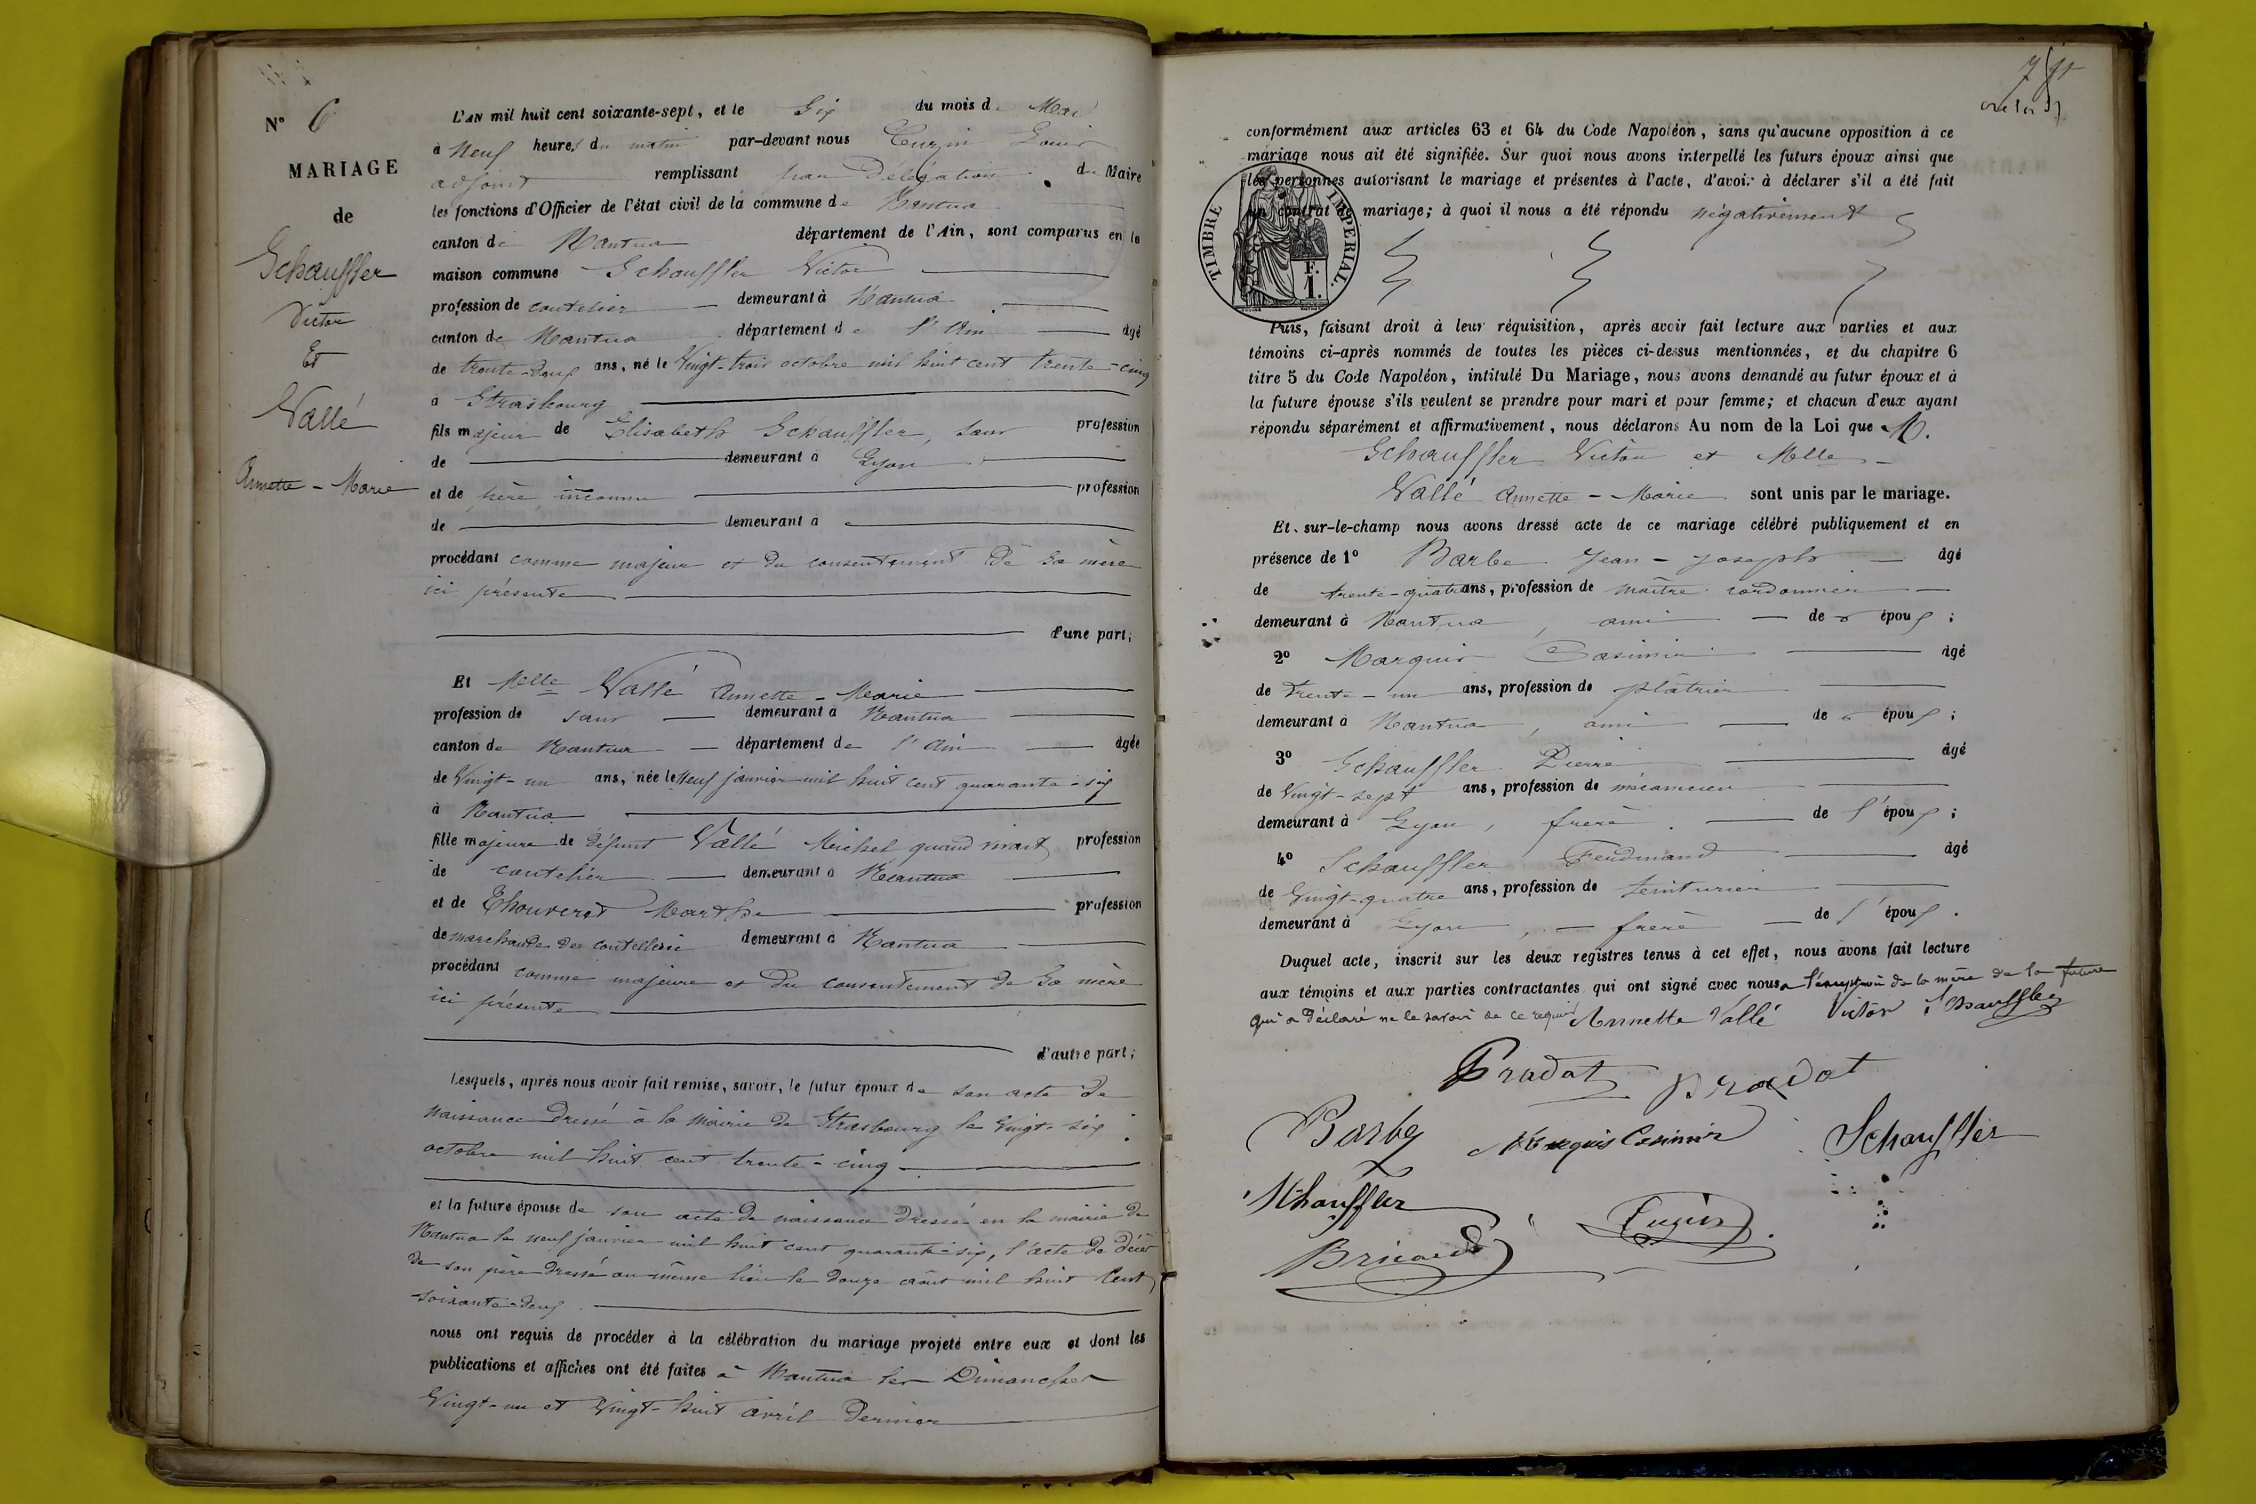 N° 6
MARIAGE
de
Schauffler
Victor
Et
Vallé
Annette - Marie
L'AN mil huit cent soixante-sept, et le Six du mois de Mai
à Neuf heures du matin par-devant nous Louis
adjoint remplissant par Délégation du Maire
les fonctions d'Officier de l'état civil de la commune de Nantua
canton de Nantua département de l'Ain, sont comparus en la
maison commune Schauffler Victor
profession de coutelier demeurant à Nantua
canton de Nantua département de l'Ain âgé
de trente-deux ans, né le Vingt-trois octobre mil huit cent trente-cinq
à Strasbourg
fils majeur de Elisabeth Schauffler, sans profession
de demeurant à Lyon
et de père inconnu profession
de demeurant à
procédant comme majeur et du consentement de sa mère
ici présente
d'une part;
Et Melle Vallé Annette - Marie
profession de sans demeurant à Nantua
canton de Nantua département de l'Ain âgée
de Vingt-un ans, née le Neuf janvier mil huit cent quarante-six
à Nantua
fille majeure de défunt Vallé Michel quand vivait profession
de coutelier demeurant à Nantua
et de Thouverez Marthe profession
de marchande de coutellerie demeurant à Nantua
procédant comme majeure et du consentement de sa mère
ici présente
d'autre part;
Lesquels, après nous avoir fait remise, savoir, le futur époux de son acte de
naissance dressé à la Mairie de Strasbourg le Vingt-six
octobre mil huit cent trente-cinq
et la future épouse de son acte de naissance dressé en la mairie de
Nantua le neuf janvier mil huit cent quarante-six, l'acte de décès
de son père dressé au même lieu le douze août mil huit cent
soixante-deux
nous ont requis de procéder à la célébration du mariage projeté entre eux et dont les
publications et affiches ont été faites à Nantua les Dimanches
Vingt-un et Vingt-huit avril dernier
conformément aux articles 63 et 64 du Code Napoléon, sans qu'aucune opposition à ce
mariage nous ait été signifiée. Sur quoi nous avons interpellé les futurs époux ainsi que
les personnes autorisant le mariage et présentes à l'acte, d'avoir à déclarer s'il a été fait
un contrat de mariage; à quoi il nous a été répondu négativement
TIMBRE IMPÉRIAL.
F.
1.
Puis, faisant droit à leur réquisition, après avoir fait lecture aux parties et aux
témoins ci-après nommés de toutes les pièces ci-dessus mentionnées, et du chapitre 6
titre 5 du Code Napoléon, intitulé Du Mariage, nous avons demandé au futur époux et à
la future épouse s'ils veulent se prendre pour mari et pour femme; et chacun d'eux ayant
répondu séparément et affirmativement, nous déclarons Au nom de la Loi que M.
Schauffler Victor et Melle
Vallé Annette - Marie sont unis par le mariage.
Et sur-le-champ nous avons dressé acte de ce mariage célébré publiquement et en
présence de 1° Barbe Jean - Joseph âgé
de trente-quatre ans, profession de maître cordonnier
demeurant à Nantua, ami de époux;
2° Marquis Casimir âgé
de trente-un ans, profession de plâtrier
demeurant à Nantua, ami de époux;
3° Schauffler Pierre âgé
de Vingt-sept ans, profession de mécanicien
demeurant à Lyon, frère de l'époux;
4° Schauffler Ferdinand âgé
de Vingt-quatre ans, profession de teinturier
demeurant à Lyon, frère de l'époux.
Duquel acte, inscrit sur les deux registres tenus à cet effet, nous avons fait lecture
aux témoins et aux parties contractantes qui ont signé avec nous à l'exception de la mère de la future
qui a déclaré ne le savoir de ce requis Annette Vallé Victor Schauffler
Pradat Pradat
Barbe Marquis Casimir Schauffler
Schauffler